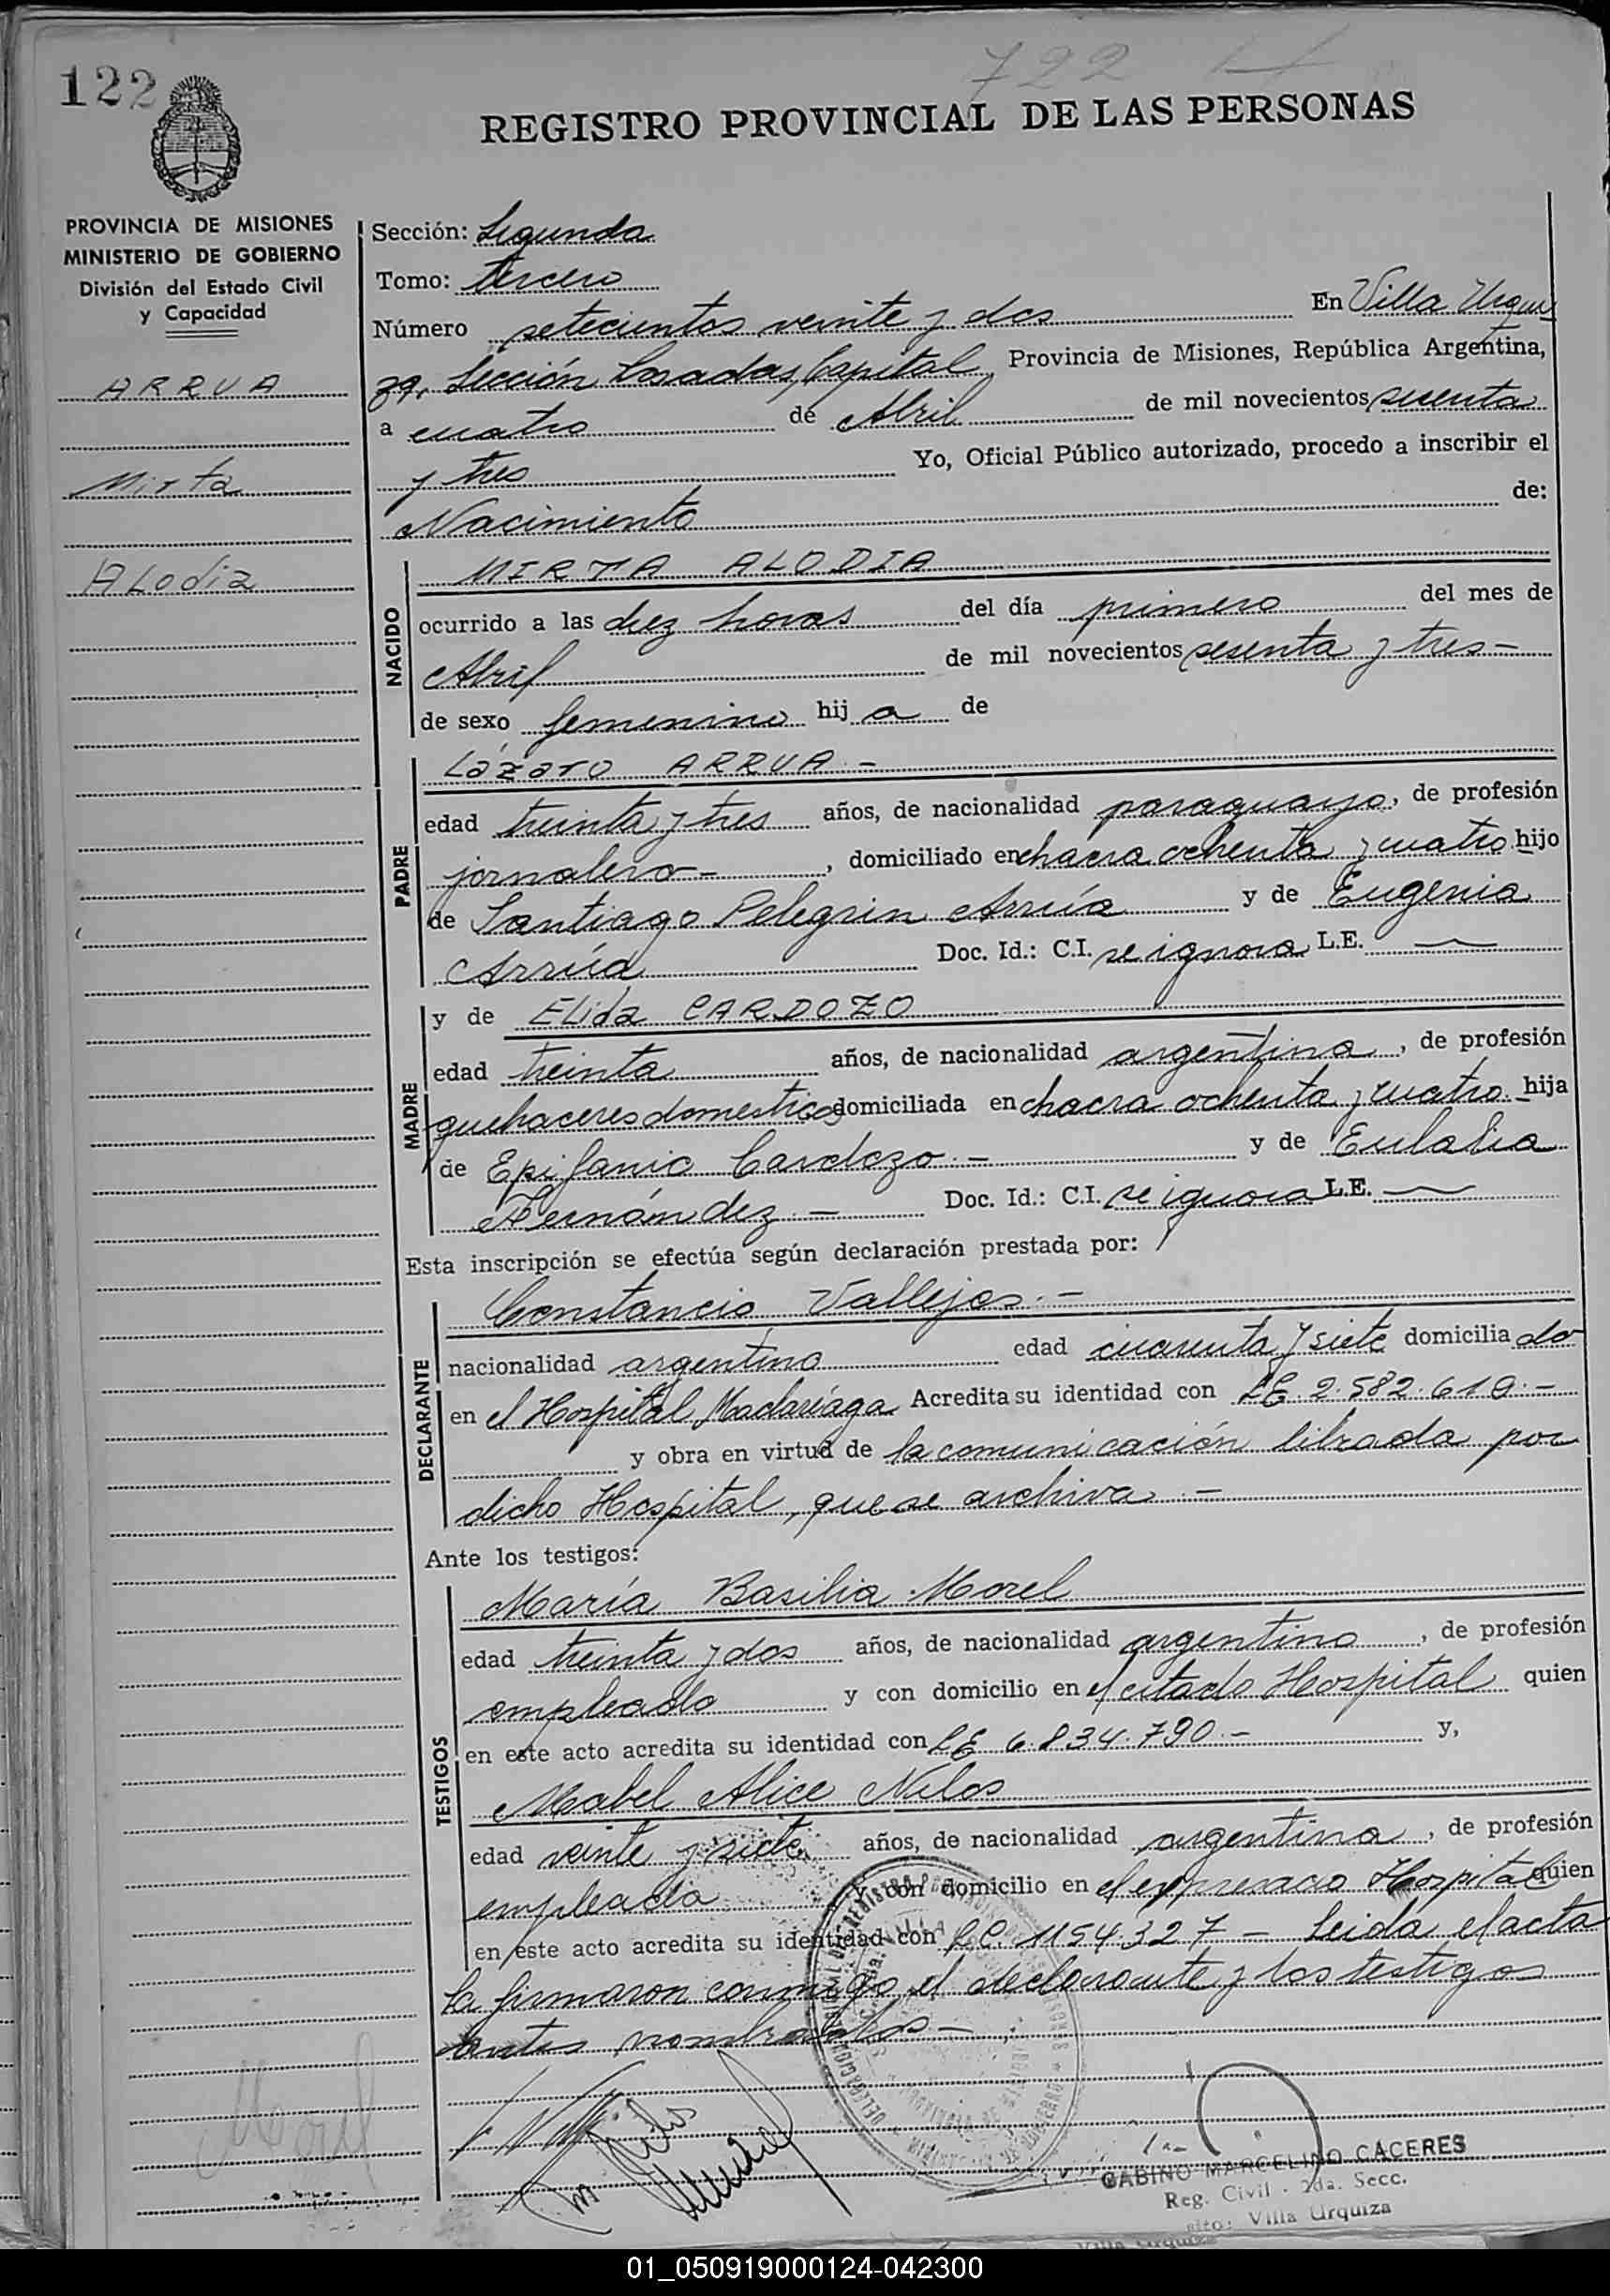 722
122
REGISTRO PROVINCIAL DE LAS PERSONAS
PROVINCIA DE MISIONES
MINISTERIO DE GOBIERNO
División del Estado Civil
y Capacidad
ARRUA
Mirta
ALodia
Sección: Segunda
Tomo: tercero
Número setecientos veinte y dos En Villa Urqui
za, Sección Posadas, Capital Provincia de Misiones, República Argentina,
a cuatro de Abril de mil novecientos sesenta
y tres Yo, Oficial Público autorizado, procedo a inscribir el
Nacimiento de:
NACIDO
MIRTA ALODIA
ocurrido a las diez horas del día primero del mes de
Abril de mil novecientos sesenta y tres -
de sexo femenino hija de
PADRE
Lázaro ARRUA -
edad treinta y tres años, de nacionalidad paraguayo, de profesión
jornalero -, domiciliado en chacra ochenta y cuatro hijo
de Santiago Pelegrin Arrúa y de Eugenia
Arrúa Doc. Id.: C.I. se ignora L.E. —
MADRE
y de ELida CARDOZO
edad treinta años, de nacionalidad argentina, de profesión
quehaceres domesticos domiciliada en chacra ochenta y cuatro. hija
de Epifanio Cardozo. - y de Eulalia
Hernández. - Doc. Id.: C.I. se ignora L.E. —
Esta inscripción se efectúa según declaración prestada por:
DECLARANTE
Constancio Vallejos. -
nacionalidad argentino edad cuarenta y siete domiciliado
en el Hospital Madariaga Acredita su identidad con LE. 2.582.610. -
y obra en virtud de la comunicación librada por
dicho Hospital, que se archiva. -
Ante los testigos:
TESTIGOS
María Basilia Morel
edad treinta y dos años, de nacionalidad argentina, de profesión
empleada y con domicilio en el citado Hospital quien
en este acto acredita su identidad con LE 6.834.790. - y,
Mabel Alice Nilos
edad veinte y siete años, de nacionalidad argentina, de profesión
empleada y con domicilio en el expresado Hospital quien
en este acto acredita su identidad con LC. 1154.327 - Leida el acta
la firmaron conmigo, el declarante y los testigos
antes nombrados -
Morel
GABINO MARCELINO CACERES
Reg. Civil - 2da. Secc.
Villa Urquiza
01_050919000124-042300